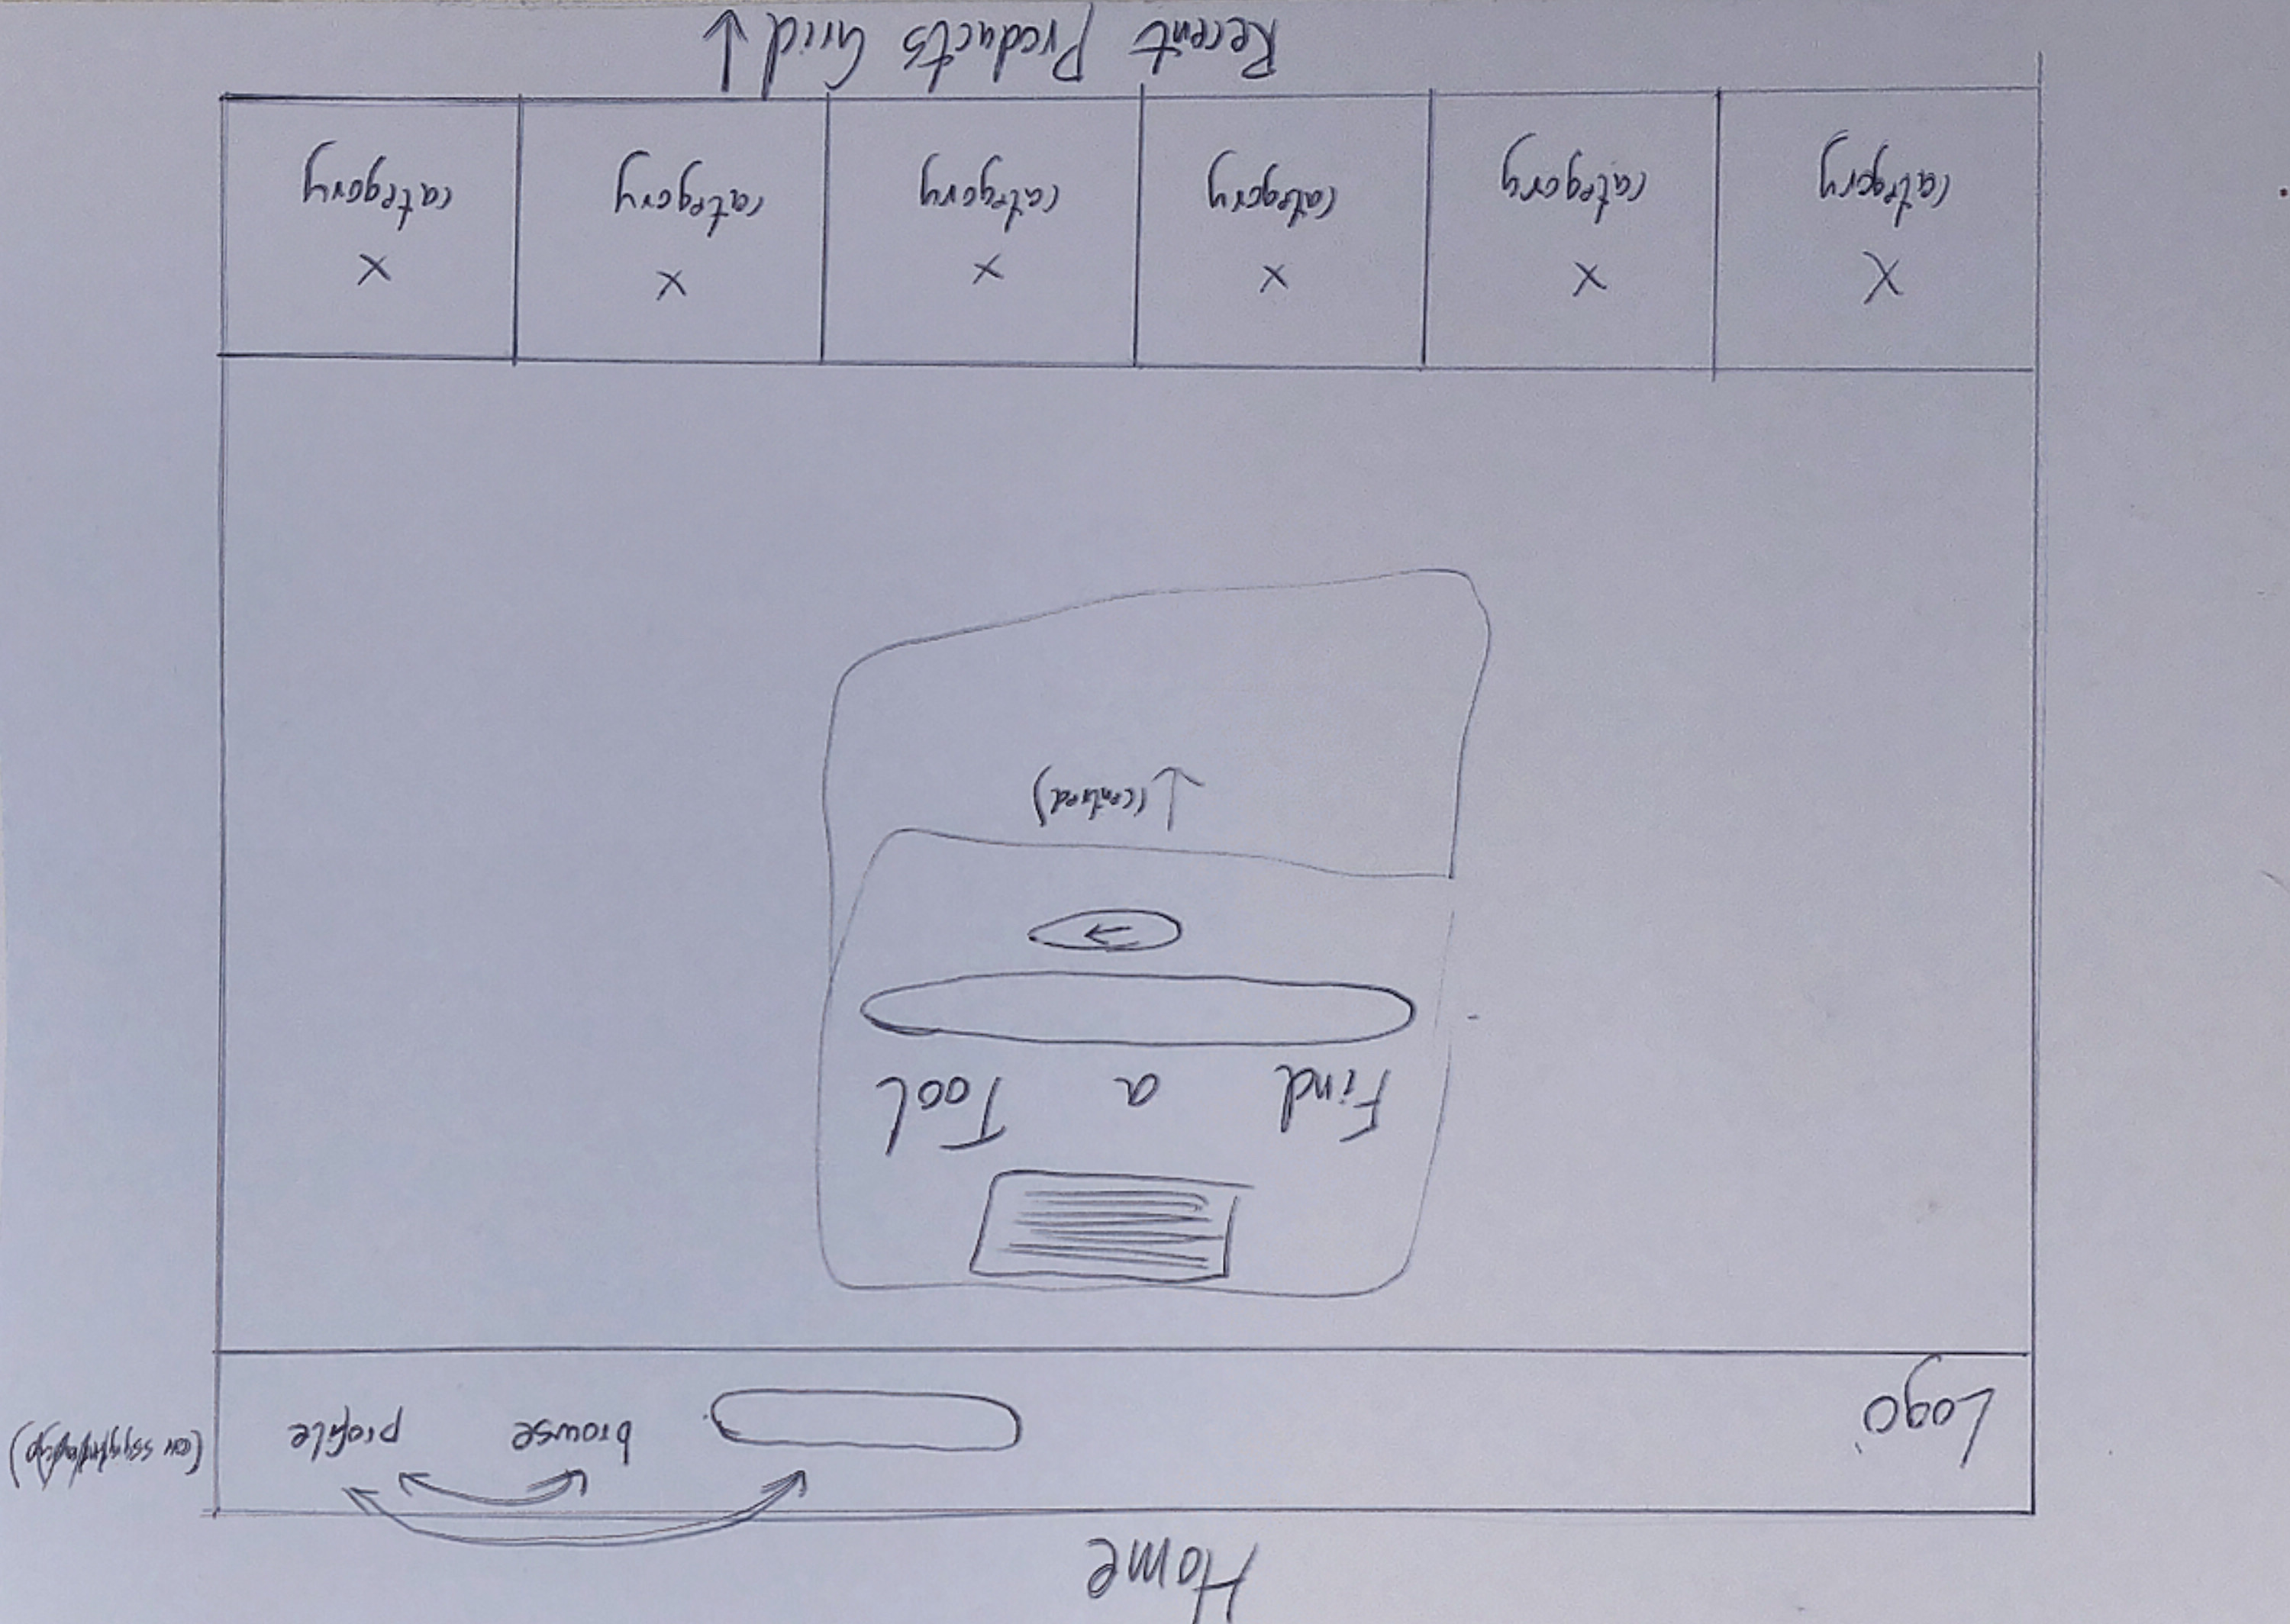 Home
Logo browse profile
Find a Tool
→
↓ (centred)
X X X X X X
category category category category category category
Recent Products Grid ↓